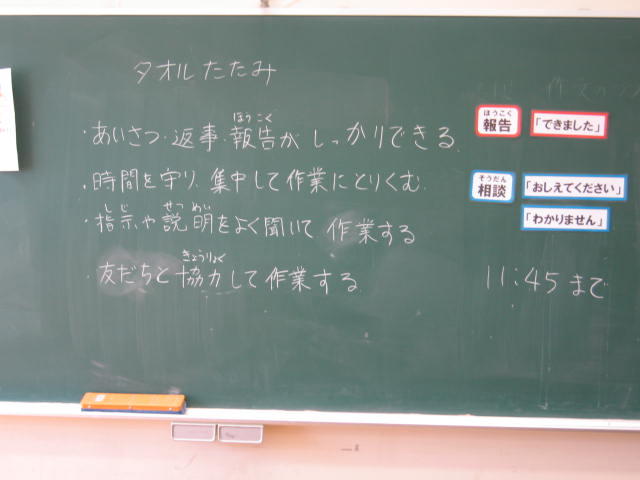 タオルたたみ
・あいさつ・返事・報告がしっかりできる
ほうこく
・時間を守り、集中して作業にとりくむ
・指示や説明をよく聞いて作業する
しじ せつめい
・友だちと協力して作業する
きょうりょく
ほうこく
報告
「できました」
そうだん
相談
「おしえてください」
「わかりません」
11:45まで